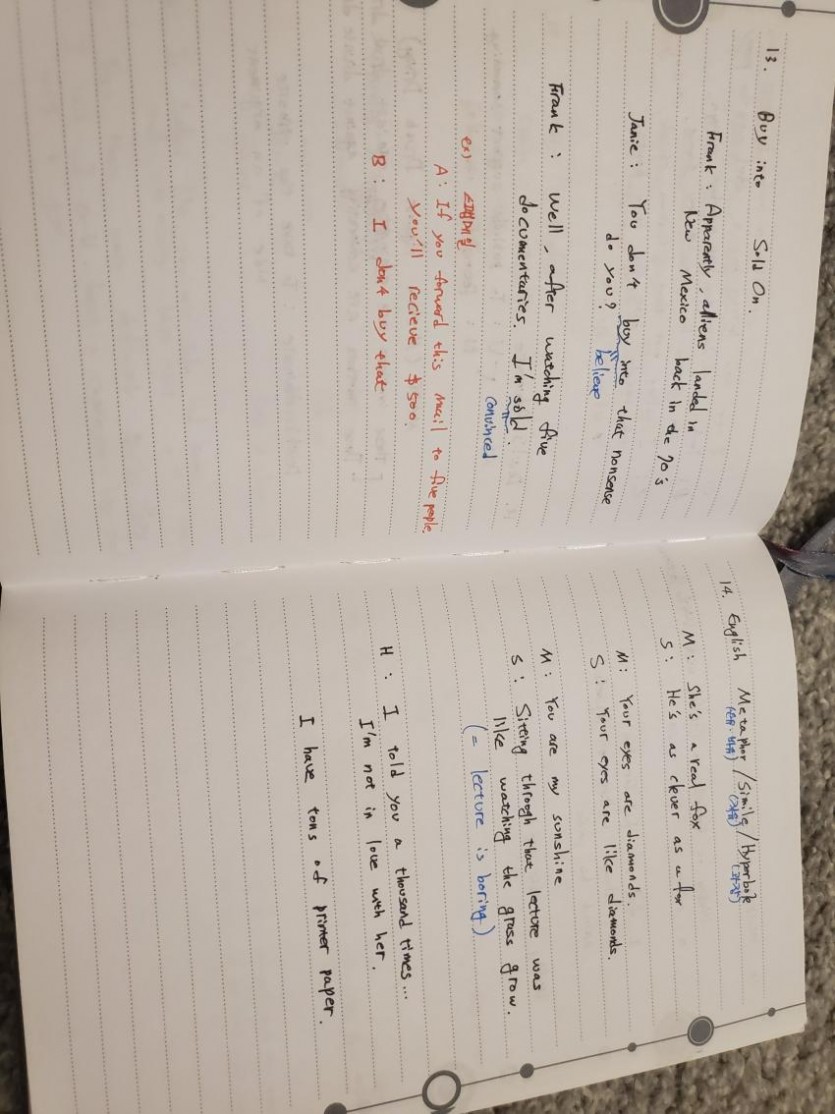 13. Buy into Sold On.
Frank : Apparently, alliens landed in
New Mexico back in the 70's
Janie : You don't buy into that nonsense
do you?
believe
Frank : Well, after watching five
documentaries. I'm sold.
convinced
ex) 스팸메일
A : If you forward this mail to five people
you'll recieve $500.
B : I don't buy that
14. English Metaphor / Simile / Hyperbole
(은유·비유) (직유) (과장)
M : She's a real fox
S : He's as clever as a fox
M : Your eyes are diamonds.
S : Your eyes are like diamonds.
M : You are my sunshine
S : Sitting through that lecture was
like watching the grass grow.
(= lecture is boring)
H : I told you a thousand times...
I'm not in love with her.
I have tons of printer paper.